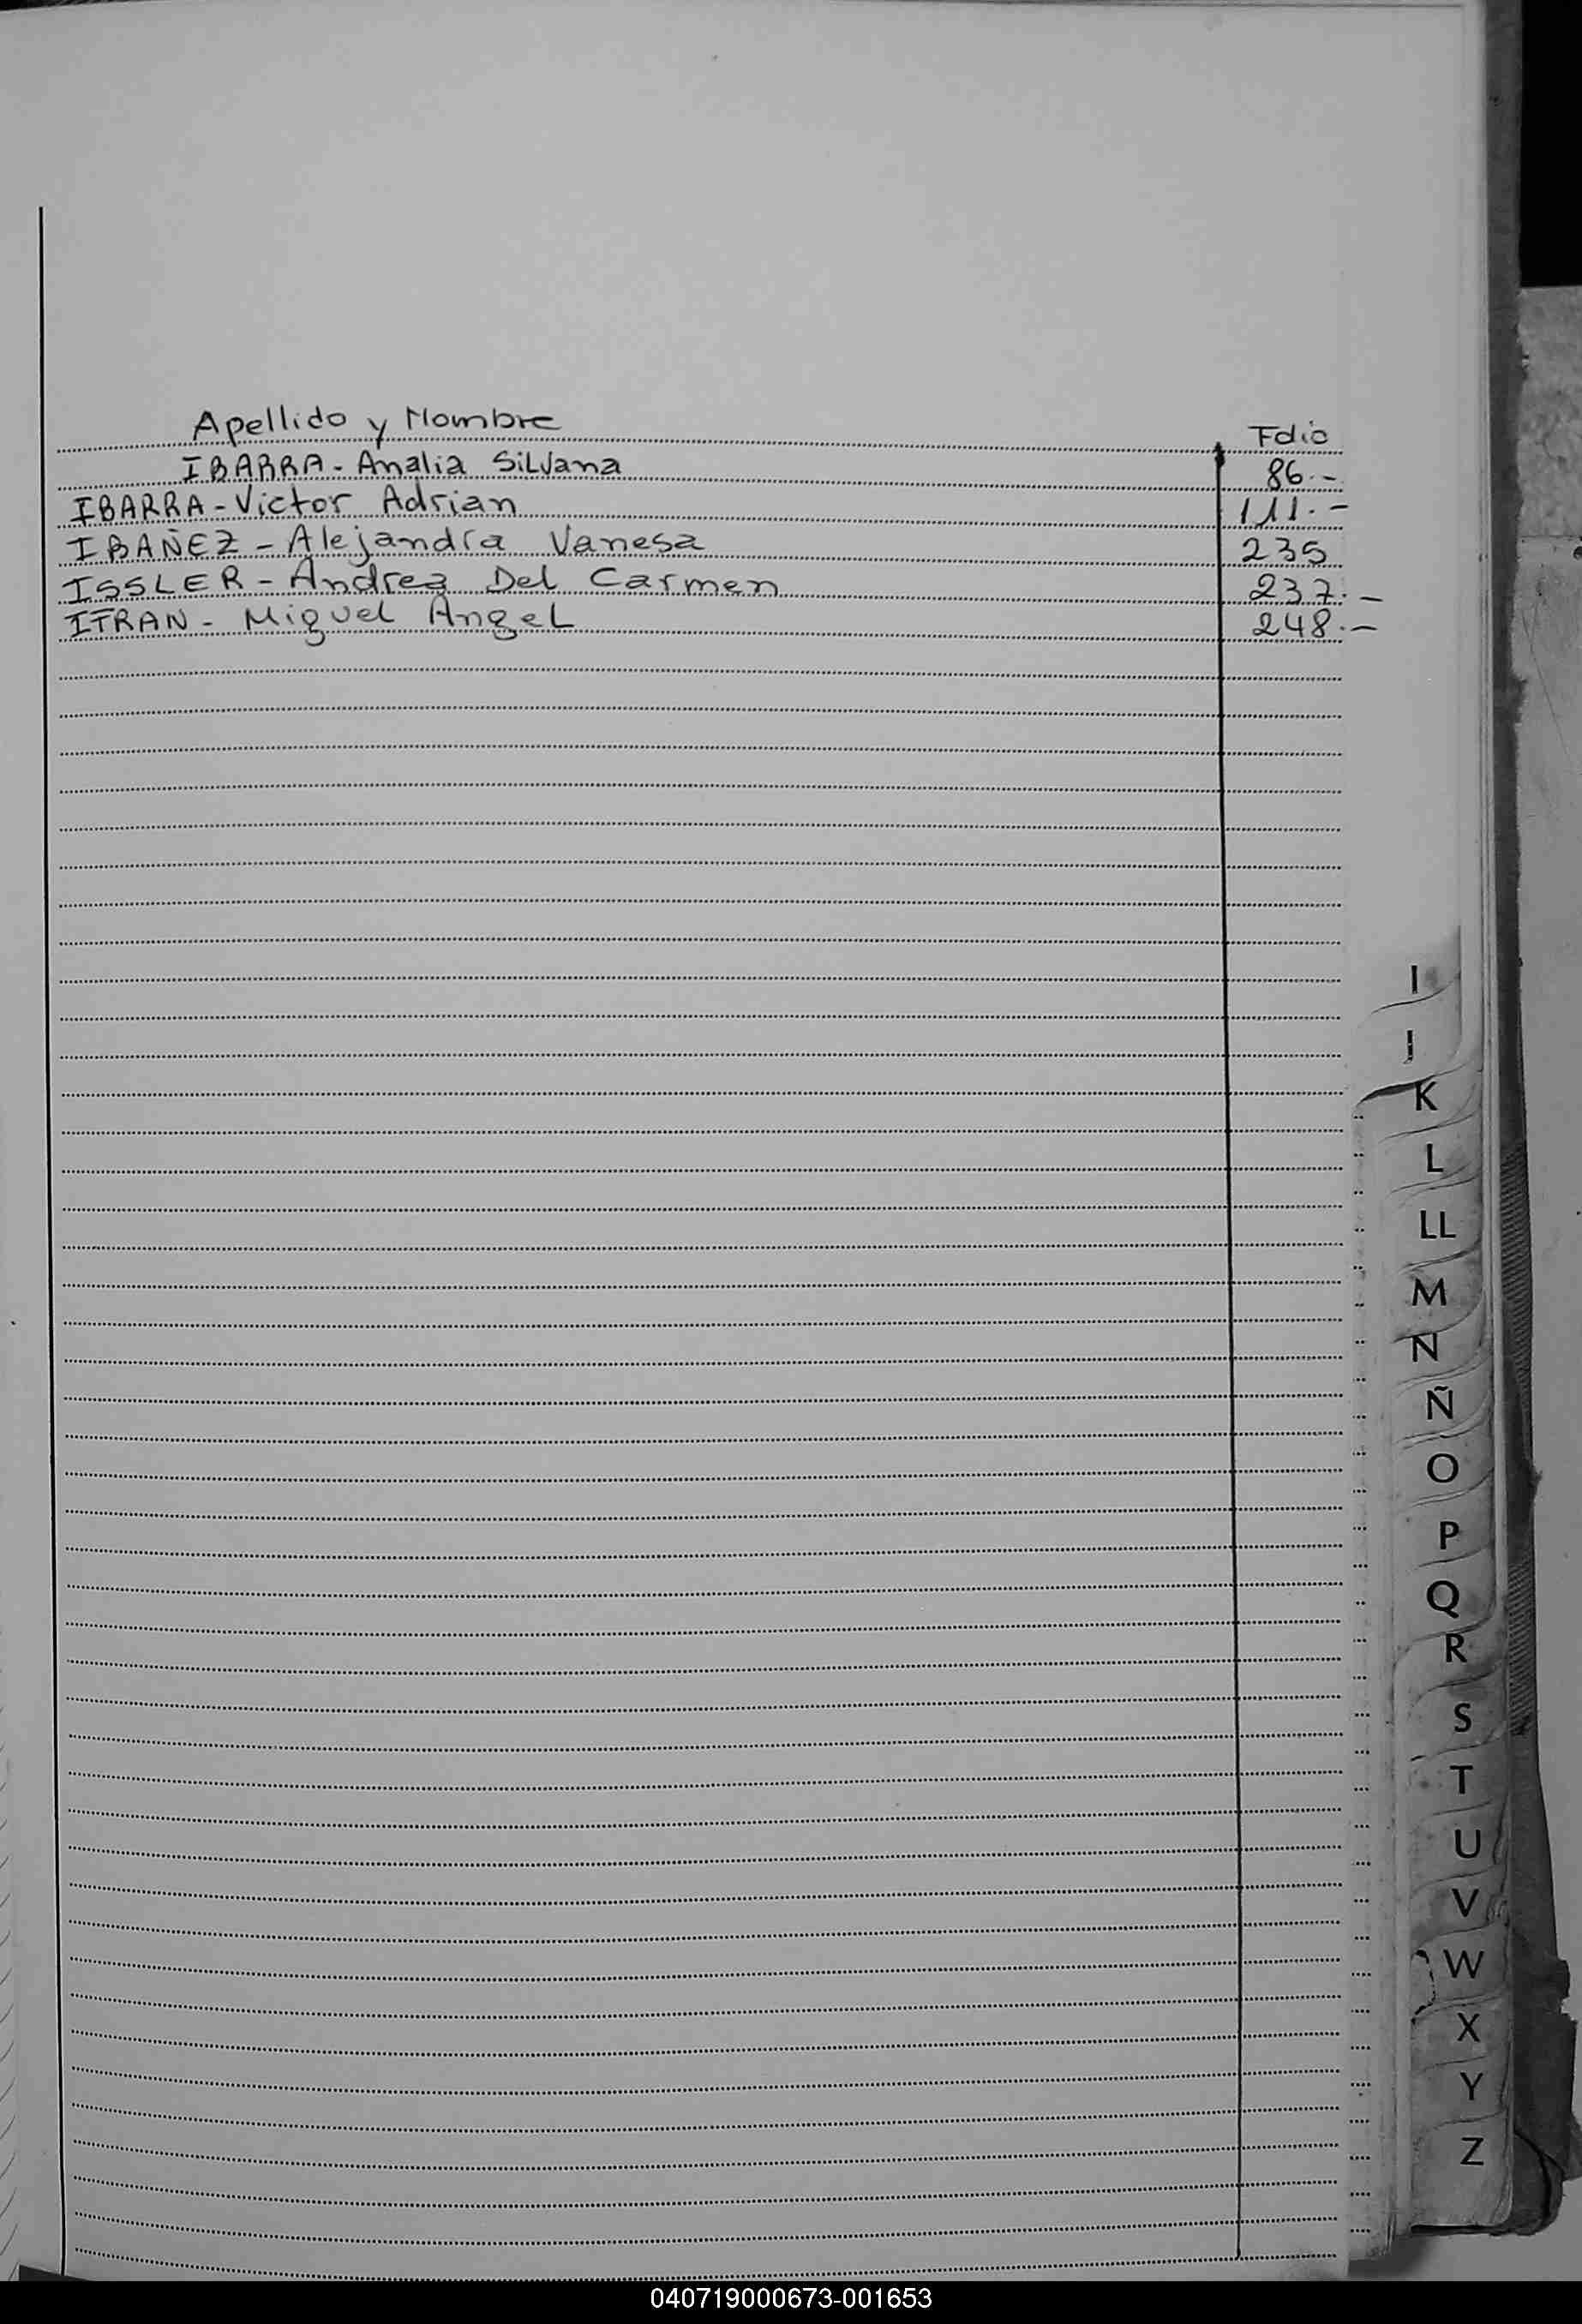 Apellido y Nombre Folio
IBARRA - Analia Silvana 86.-
IBARRA - Victor Adrian 111.-
IBAÑEZ - Alejandra Vanesa 235
ISSLER - Andrea Del Carmen 237.-
ITRAN - Miguel Angel 248.-
I
J
K
L
LL
M
N
Ñ
O
P
Q
R
S
T
U
V
W
X
Y
Z
040719000673-001653